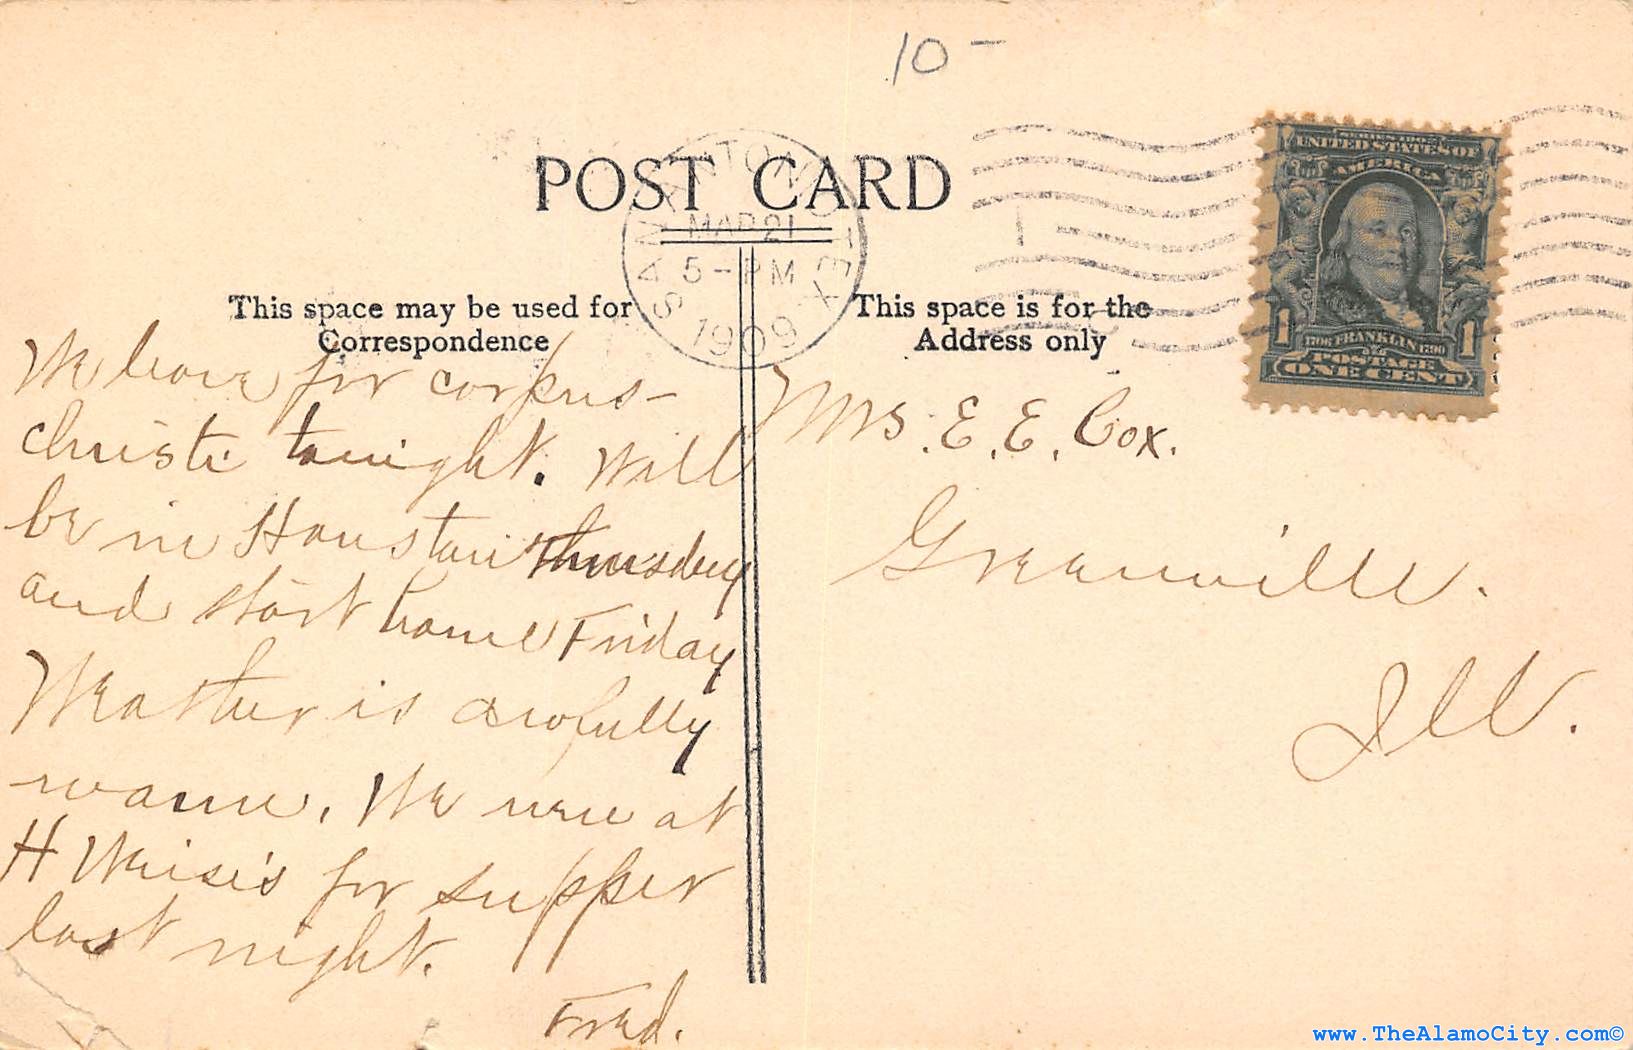 10 -
POST CARD
SAN ANTONIO TEX
MAR 21
5 - PM
1909
1
SERIES 1902
UNITED STATES OF
AMERICA
1 1
1706 FRANKLIN 1790
POSTAGE
ONE CENT
This space may be used for
Correspondence
We leave for corpus-
christi tonight. Will
be in Houston Thursday
and start home Friday
Weather is awfully
warm. We were at
H Weise's for supper
last night.
Fred.
This space is for the
Address only
Mrs. E. E. Cox.
Greenville.
Ill.
www.TheAlamoCity.com©